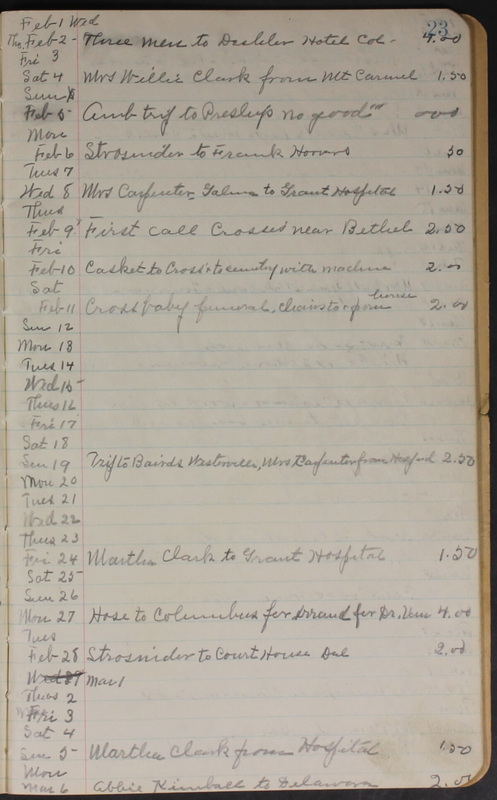 23
Feb-1 Wed
Thu Feb 2- Three men to Deshler Hotel Col- 4.00
Fri 3
Sat 4 Mrs Willie Clark from Mt Carmel 1.50
Sun
Feb 5- Amb trip to no good 000
Mon
Feb 6 Strosnider to Frank 50
Tues 7
Wed 8 Mrs Carpenter Galena to Grant Hospital 1.50
Thus
Feb-9 First call Crosses near Bethel 2.50
Fri
Feb-10 Casket to Cross to with machine 2.00
Sat
house
Feb 11 Cross baby funeral, chairs to + from 2.00
Sun 12
Mon 13
Tues 14
Wed 15-
Thus 16
Fri 17
Sat 18
Sun 19 Trip to Bairds Westerville, Mrs Carpenter from 2.50
Mon 20
Tues 21
Wed 22
Thus 23
Fri 24 Martha Clark to Grant Hospital 1.50
Sat 25-
Sun 26
Mon 27 to Columbus for for Dr. 4.00
Tues
Feb-28 Strosnider to Court House Del 2.00
Wed Mar 1
Thus 2
Fri 3
Sat 4
Sun 5- Martha Clark from Hospital 1.50
Mon
Mar 6 Abbie Kimball to Delaware 2.00